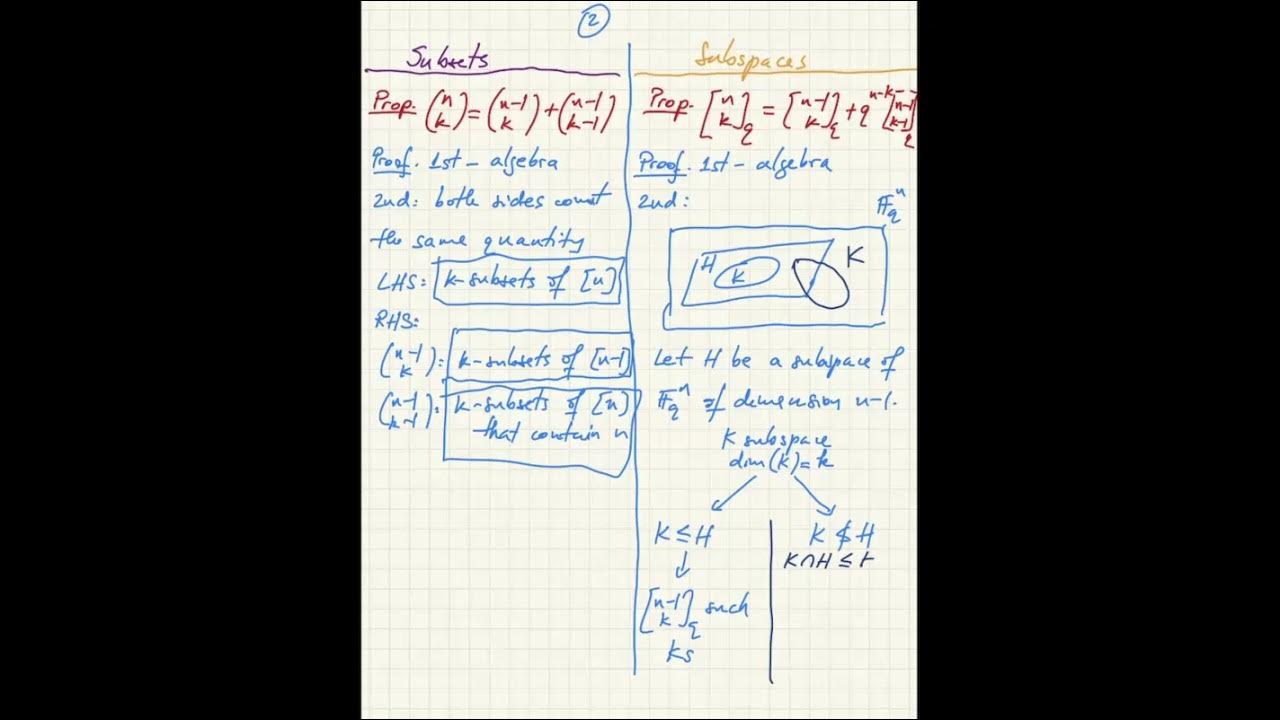 2
Subsets
Prop. (n k) = (n-1 k) + (n-1 k-1)
Proof. 1st - algebra
2nd: both sides count
the same quantity
LHS: k-subsets of [n]
RHS:
(n-1 k): k-subsets of [n-1]
(n-1 k-1): k-subsets of [n]
that contain n
Subspaces
Prop. [n k]_q = [n-1 k]_q + q^{n-k} [n-1 k-1]_q
Proof. 1st - algebra
2nd:
𝔽_q^n
H
K
K
Let H be a subspace of
𝔽_q^n of dimension n-1.
K subspace
dim(K) = k
K ≤ H
[n-1 k]_q such
Ks
K ≰ H
K ∩ H ≤